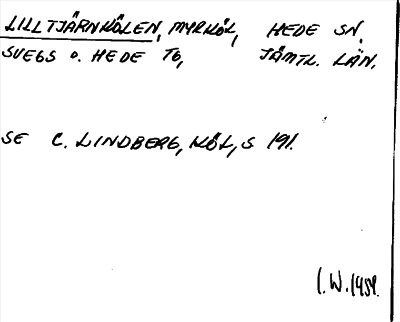 LILLTJÄRNKÖLEN, MYRKÖL, HEDE SN,
SVEGS O. HEDE TG, JÄMTL. LÄN.
SE C. LINDBERG, KÖL, S 191.
I.W. 1959.